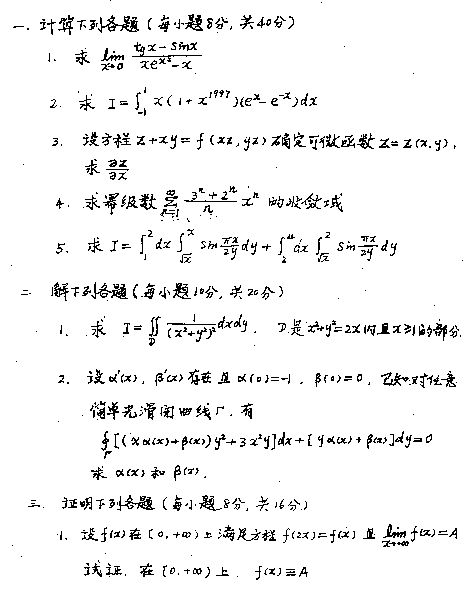 一. 计算下列各题(每小题8分,共40分)
1. 求 lim_{x→0} (tgx - sinx)/(xe^{x²} - x)
2. 求 I = ∫_{-1}^{1} x(1 + x^{1997})(e^x - e^{-x})dx
3. 设方程 z + xy = f(xz, yz) 确定可微函数 z = z(x, y),
求 ∂z/∂x
4. 求幂级数 ∑_{n=1}^{∞} (3^n + 2^n)/n x^n 的收敛域
5. 求 I = ∫_1^2 dx ∫_{√x}^x sin πx/2y dy + ∫_2^4 dx ∫_{√x}^2 sin πx/2y dy
二 解下列各题(每小题10分,共20分)
1. 求 I = ∬_D 1/(x²+y²)² dxdy, D是 x²+y²=2x 内且 x≥1 的部分
2. 设 α'(x), β'(x) 存在且 α(0)=-1, β(0)=0, 已知对任意
简单光滑闭曲线Γ, 有
∮_Γ [(xα(x)+β(x))y²+3x²y]dx + [yα(x)+β(x)]dy=0
求 α(x) 和 β(x).
三. 证明下列各题(每小题8分,共16分)
1. 设 f(x) 在 [0, +∞) 上满足方程 f(2x)=f(x) 且 lim_{x→+∞} f(x)=A
试证, 在 [0, +∞) 上 f(x)≡A